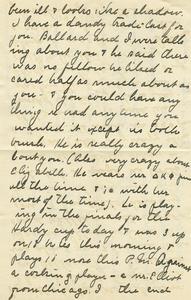 been ill & looks like a shadow.
I have a dandy trade last for
you. Ballard and I were talk
ing about you & he said there
was no fellow he liked or
cared half as much about as
you - & you could have any
thing he had any time you
wanted it except his tooth
brush. He is really crazy a
bout you. Also very crazy about
He wears her
all the time & is with her
most of the time. He is play-
ing in the finals for the
Hardy cup today & was 3 up
on this morning &
plays 18 more this P.M. Against
a corking player - a Mr.
from Chicago. I the end